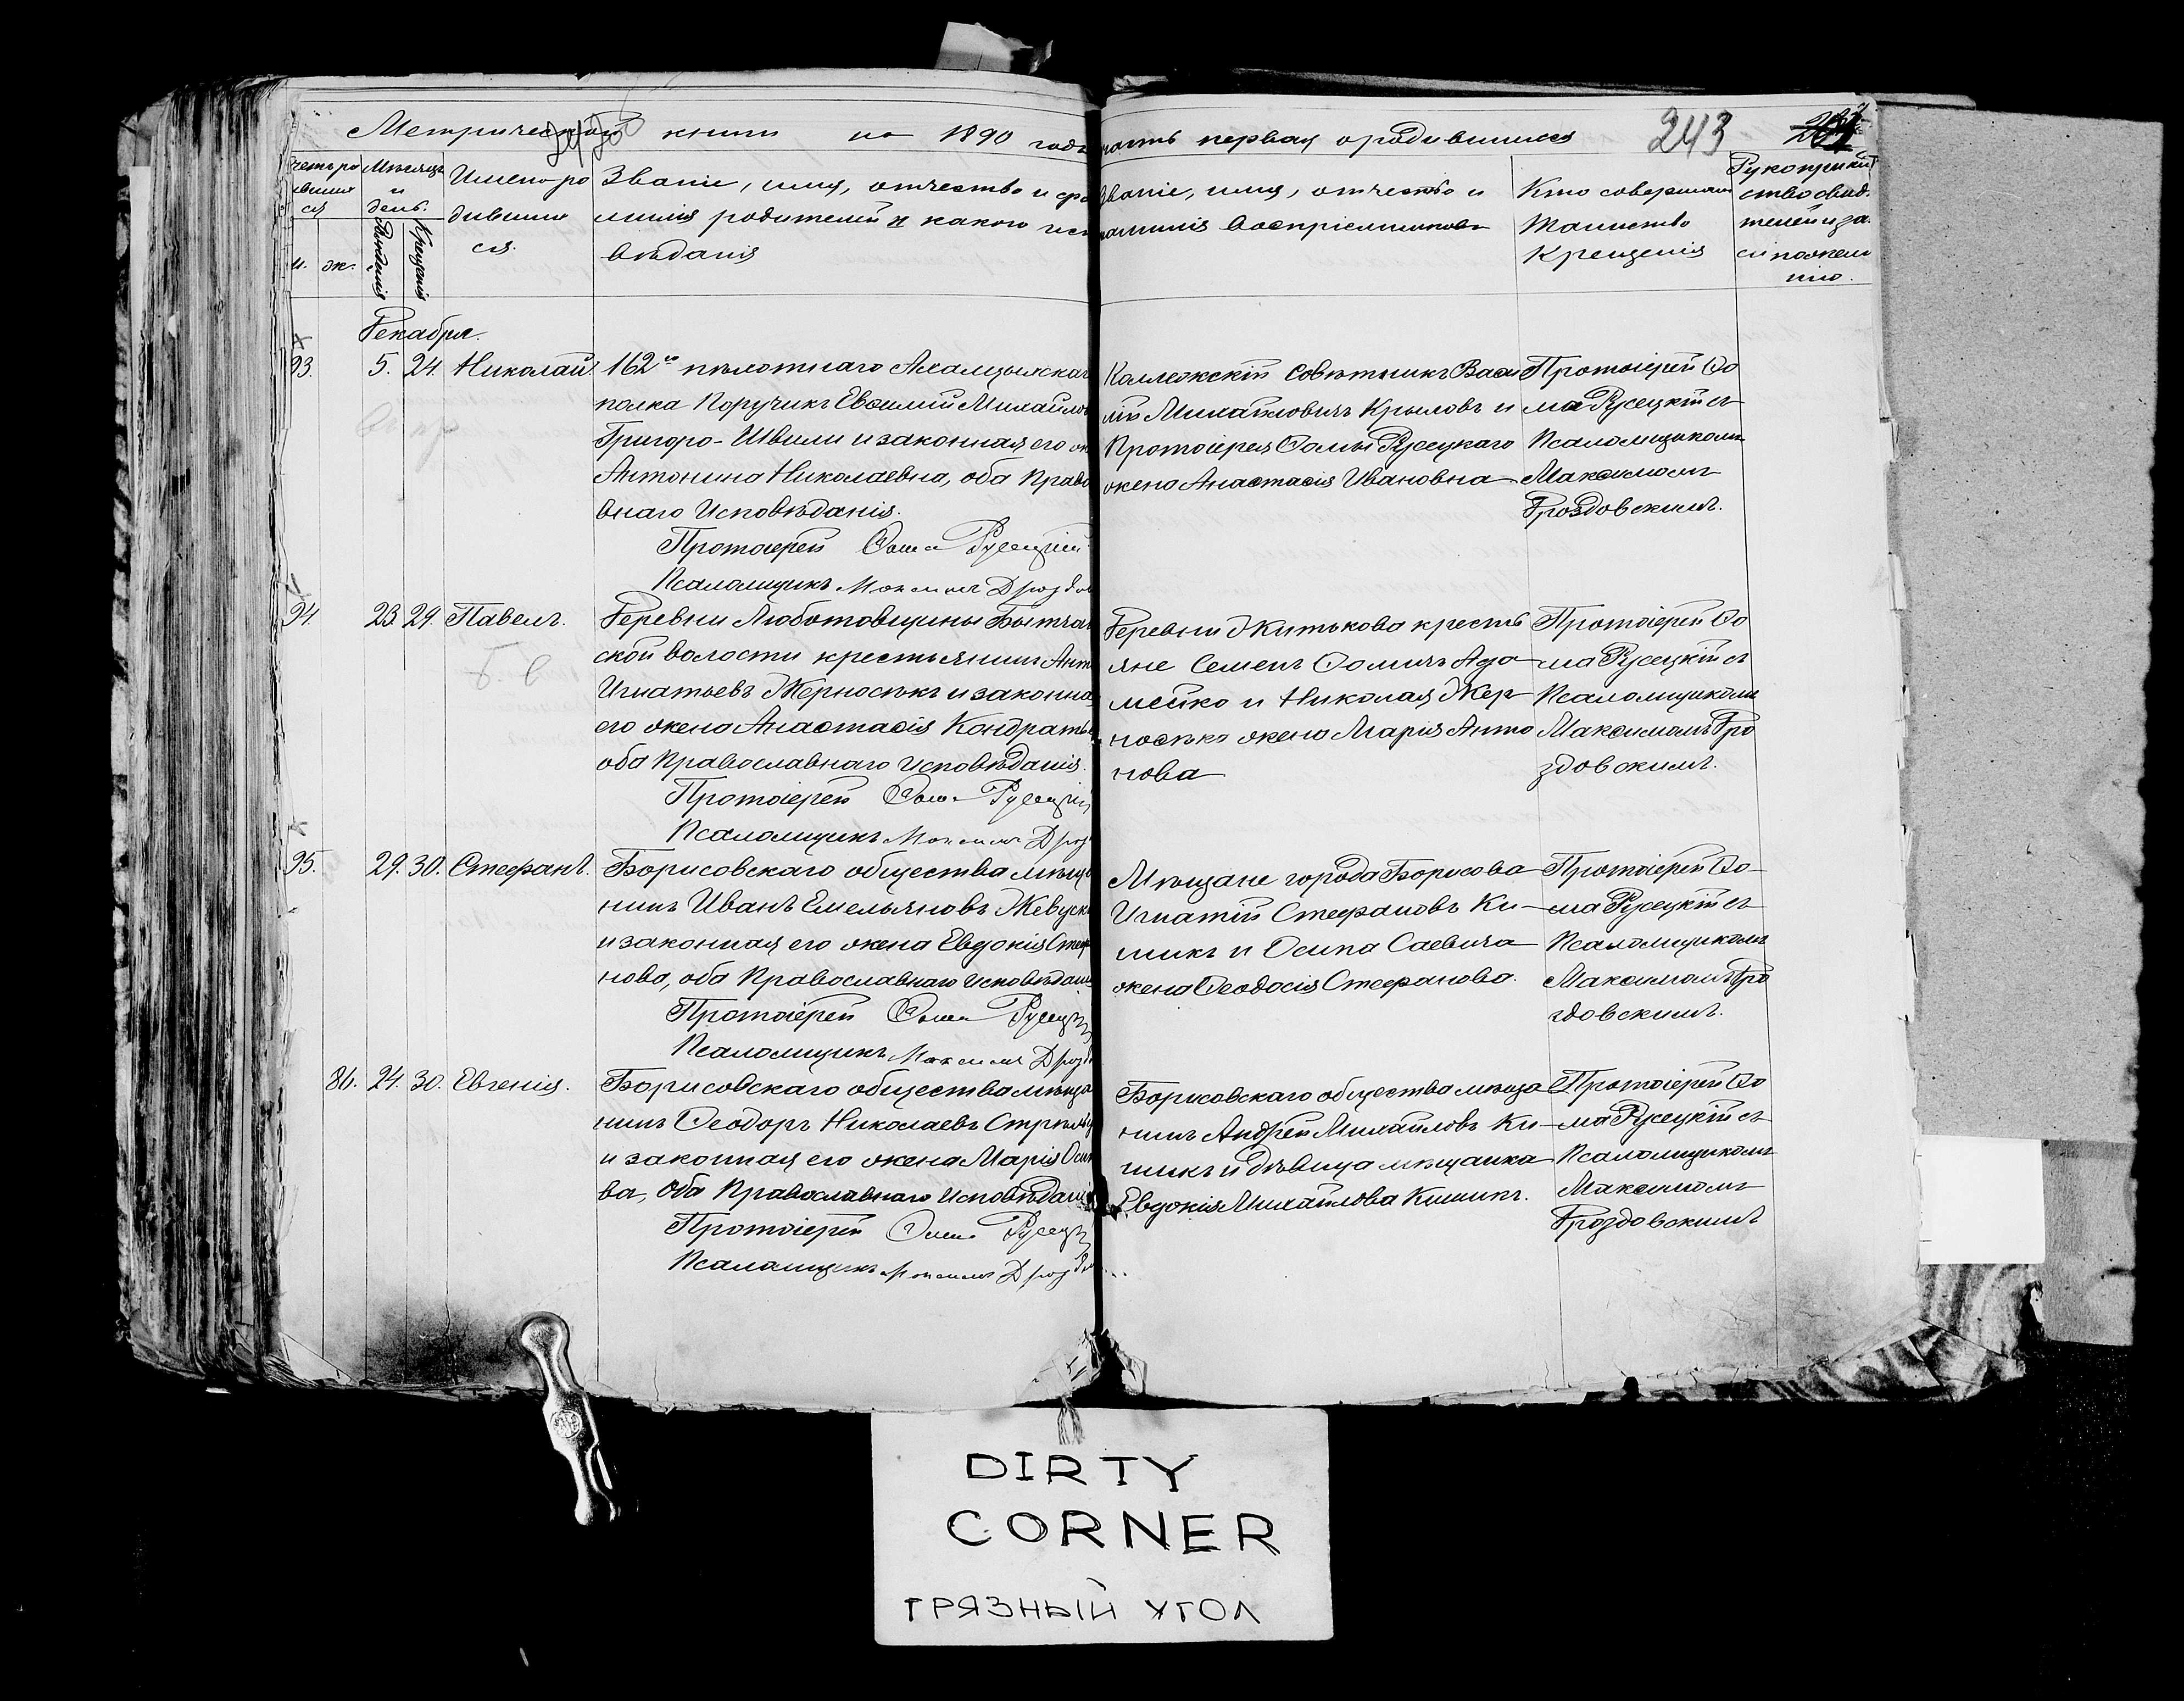 Метрической книги на 1890 годъ
часть первая о родившихся 243
Счетъ родившихся
м. ж.
Мѣсяцъ и день.
Рожденія
Крещенія
Имена ро
дивших
ся.
Званіе, имя, отчество и фа
милія родителей и какого
вѣданія
Званіе, имя, отчество и
фамилія воспріемниковъ
Кто совершалъ
таинство
крещенія
Рукоприклад
ство свидѣ
телей
Декабря.
93. 5. 24. Николай. 162го пѣхотнаго Ахалцыхскаго
полка Поручикъ Евфимій Михайло
Григоро-Швили и законная его
Антонина Николаевна, оба Право
внаго Исповѣданія.
Протоіерей Ѳома Русецкій
Псаломщикъ Максимъ Дроздов
Коллежскій Совѣтникъ Васи
лій Михайловичъ Крыловъ и
Протоіерея Ѳомы Русецкаго
жена Анастасія Ивановна
Протоіерей Ѳо
ма Русецкій съ
Псаломщикомъ
Максимомъ
Дроздовскимъ.
94. 23. 29. Павелъ. Деревни Люботовщины Бытчан
ской волости крестьянинъ Ант
Игнатьевъ Жерносѣкъ и законная
его жена Анастасія Кондратье
оба Православнаго Исповѣданія.
Протоіерей Ѳома Русецкій
Псаломщикъ Максимъ Дрозд
Деревни Житькова кресть
яне Семенъ Ѳомичъ Ада
мейко и Николая Жер
носѣка жена Марія Анто
нова
Протоіерей Ѳо
ма Русецкій съ
Псаломщикомъ
Максимомъ Дро
здовскимъ.
95. 29. 30. Стефанъ. Борисовскаго общества мѣща
нинъ Иванъ Емельяновъ
и законная его жена Евдокія Стефа
нова, оба Православнаго Исповѣданія
Протоіерей Ѳома Русецкій
Псаломщикъ Максимъ Дрозд
Мѣщане города Борисова
Игнатій Стефановъ Ки
шикъ и Осипа Саевича
жена Ѳеодосія Стефанова.
Протоіерей Ѳо
ма Русецкій съ
Псаломщикомъ
Максимомъ Дро
здовскимъ.
86. 24. 30. Евгенія. Борисовскаго общества мѣща
нинъ Ѳеодоръ Николаевъ
и законная его жена Марія Осипо
ва, оба Православнаго Исповѣданія
Протоіерей Ѳома Русецкій
Псаломщикъ Максимъ Дроздов
Борисовскаго общества мѣща
нинъ Андрей Михайловъ Ки
шикъ и дѣвица мѣщанка
Евдокія Михайлова Кишикъ.
Протоіерей Ѳо
ма Русецкій съ
Псаломщикомъ
Максимомъ
Дроздовскимъ
DIRTY
CORNER
ГРЯЗНЫЙ УГОЛ